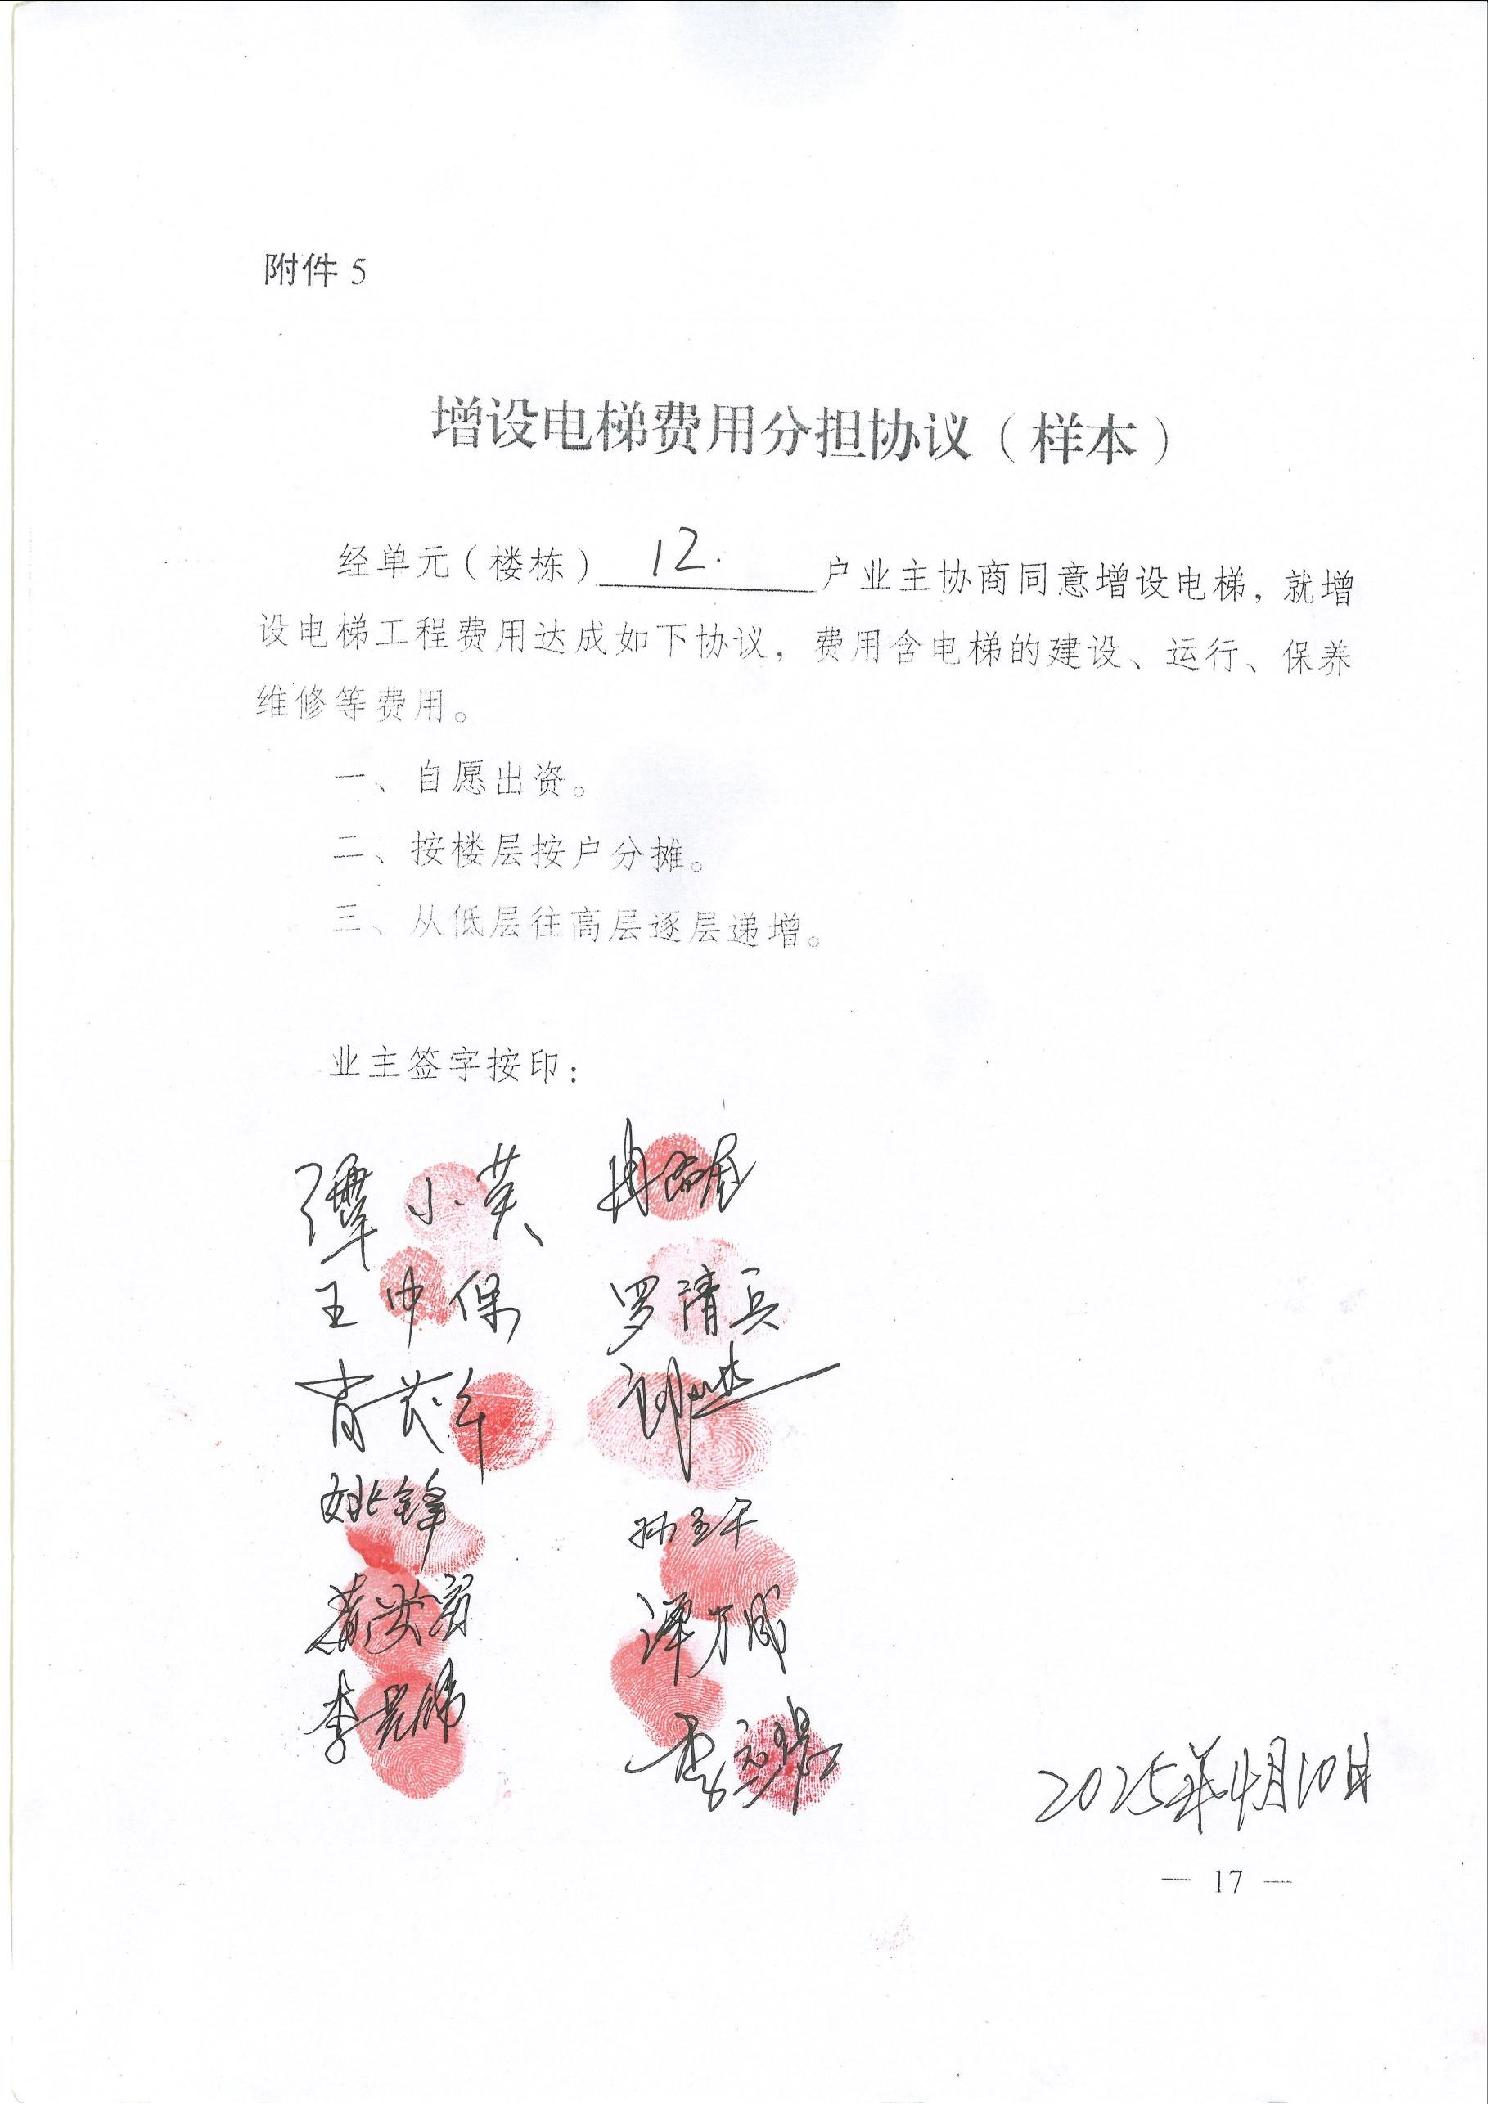 附件 5
增设电梯费用分担协议（样本）
经单元（楼栋） 12. 户业主协商同意增设电梯，就增
设电梯工程费用达成如下协议，费用含电梯的建设、运行、保养
维修等费用。
一、自愿出资。
二、按楼层按户分摊。
三、从低层往高层逐层递增。
业主签字按印：
谭小英 冉
王中保 罗清兵
肖 刘
姚锋 孙
谭万成
李
2025年4月10日
— 17 —